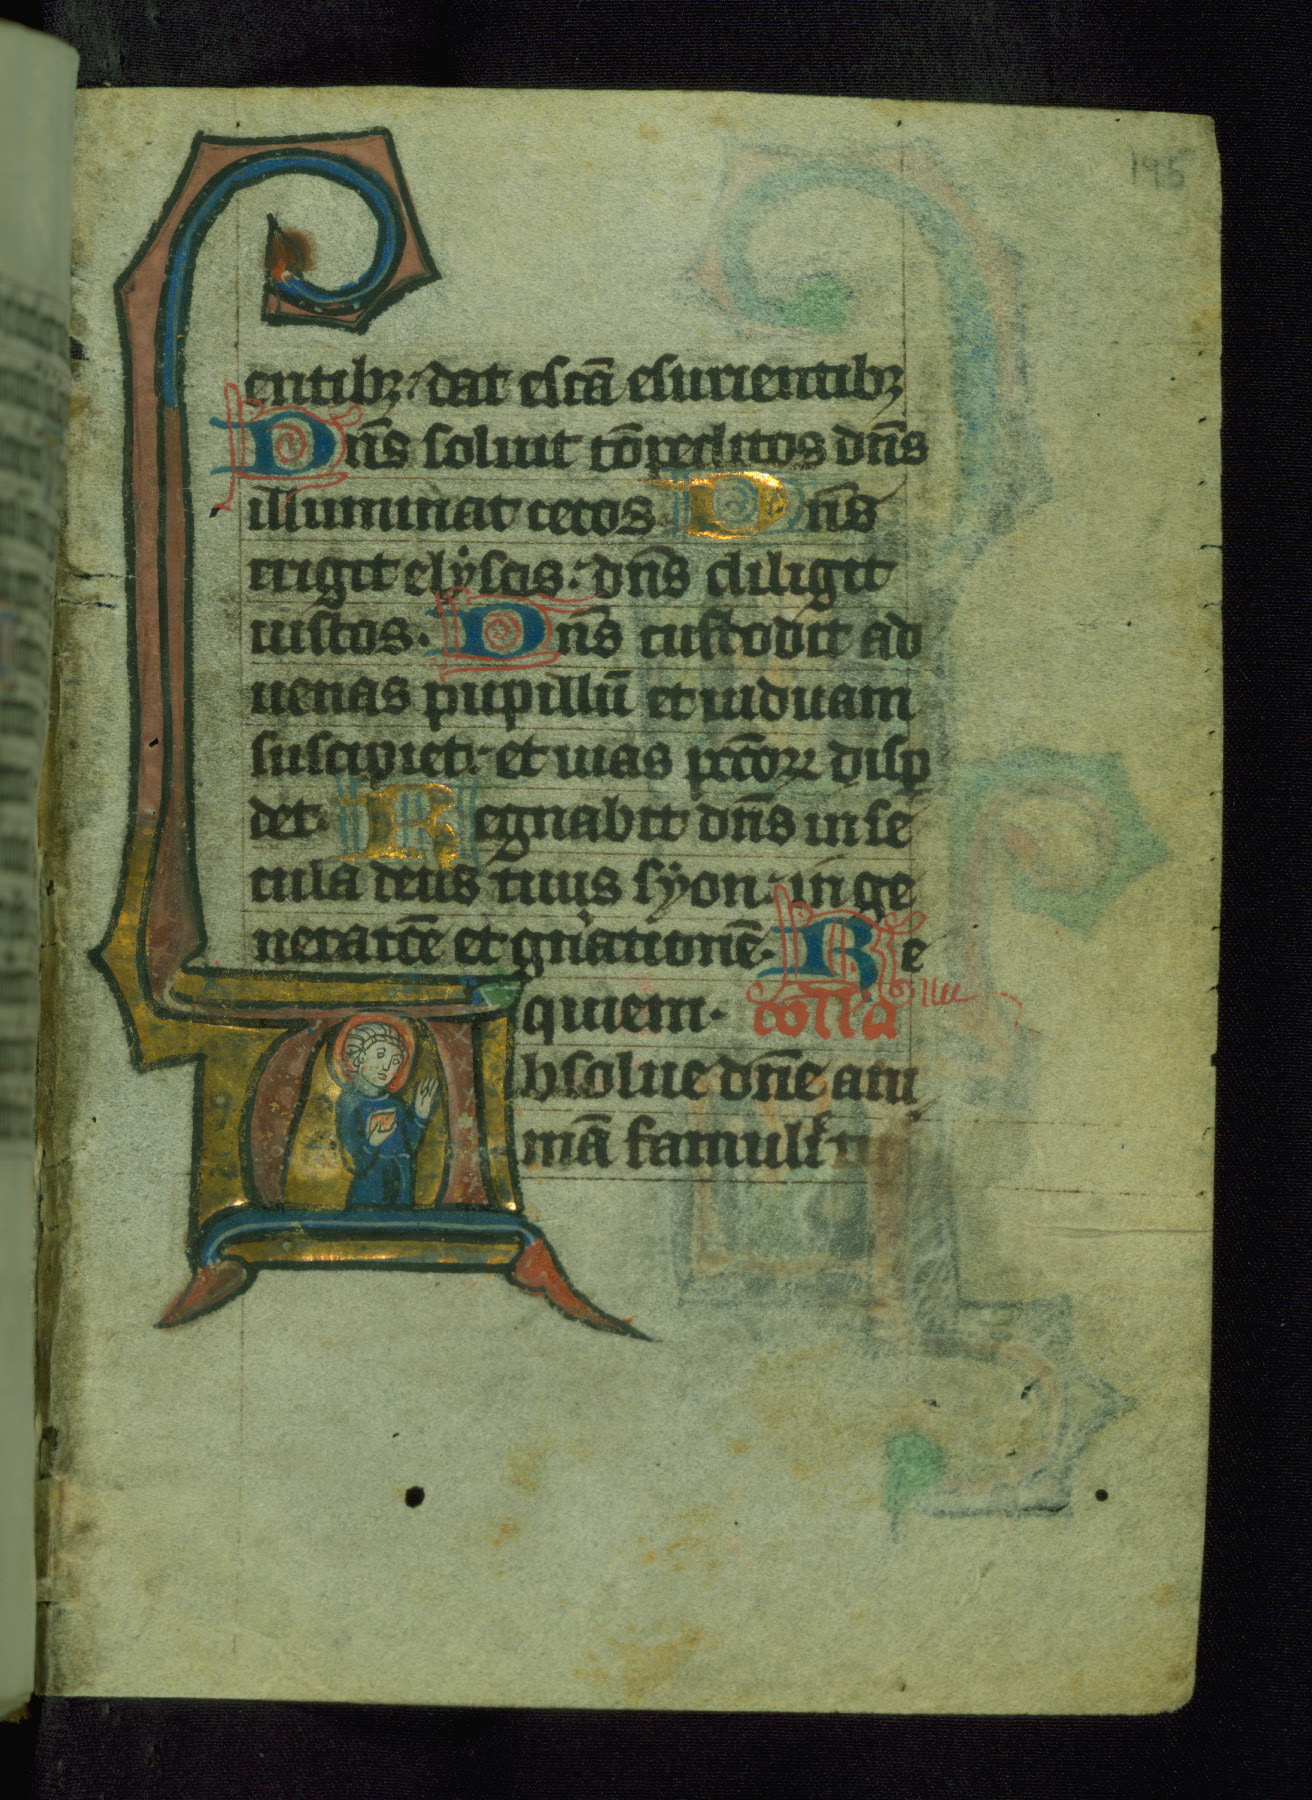 195
entibꝫ· dat escā esurientibꝫ
Dn̄s soluit cōpeditos dn̄s
illuminat cecos Dn̄s
erigit elẏsos· dn̄s diligit
iustos· Dn̄s custodit ad
uenas pupillū et uiduam
suscipiet· et uias pctōꝝ disp
det· Regnabit dn̄s in se
cula deus tuus sẏon· in ge
neratōē et gn̄ationē· Re
quiem· coll'a
Absolue dn̄e ani
mā famuli